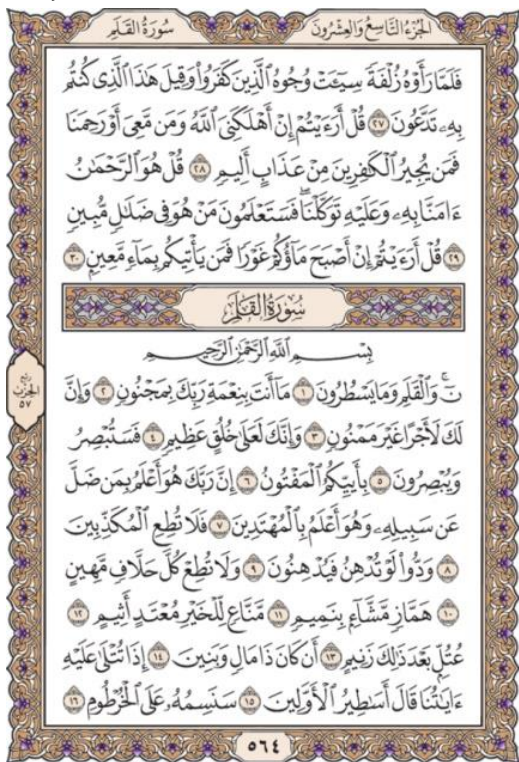 الجُزْءُ التَّاسِعُ وَالعِشْرُونَ سُورَةُ القَلَمِ
فَلَمَّا رَأَوْهُ زُلْفَةً سِيٓـَٔتْ وُجُوهُ ٱلَّذِينَ كَفَرُواْ وَقِيلَ هَٰذَا ٱلَّذِي كُنتُم
بِهِۦ تَدَّعُونَ ٢٧ قُلْ أَرَءَيْتُمْ إِنْ أَهْلَكَنِيَ ٱللَّهُ وَمَن مَّعِيَ أَوْ رَحِمَنَا
فَمَن يُجِيرُ ٱلْكَٰفِرِينَ مِنْ عَذَابٍ أَلِيمٖ ٢٨ قُلْ هُوَ ٱلرَّحْمَٰنُ
ءَامَنَّا بِهِۦ وَعَلَيْهِ تَوَكَّلْنَاۖ فَسَتَعْلَمُونَ مَنْ هُوَ فِي ضَلَٰلٖ مُّبِينٖ
٢٩ قُلْ أَرَءَيْتُمْ إِنْ أَصْبَحَ مَآؤُكُمْ غَوْرٗا فَمَن يَأْتِيكُم بِمَآءٖ مَّعِينِۭ ٣٠
سُورَةُ القَلَمِ
بِسْمِ ٱللَّهِ ٱلرَّحْمَٰنِ ٱلرَّحِيمِ
نٓۚ وَٱلْقَلَمِ وَمَا يَسْطُرُونَ ١ مَآ أَنتَ بِنِعْمَةِ رَبِّكَ بِمَجْنُونٖ ٢ وَإِنَّ
لَكَ لَأَجْرًا غَيْرَ مَمْنُونٖ ٣ وَإِنَّكَ لَعَلَىٰ خُلُقٍ عَظِيمٖ ٤ فَسَتُبْصِرُ
وَيُبْصِرُونَ ٥ بِأَييِّكُمُ ٱلْمَفْتُونُ ٦ إِنَّ رَبَّكَ هُوَ أَعْلَمُ بِمَن ضَلَّ
عَن سَبِيلِهِۦ وَهُوَ أَعْلَمُ بِٱلْمُهْتَدِينَ ٧ فَلَا تُطِعِ ٱلْمُكَذِّبِينَ
٨ وَدُّواْ لَوْ تُدْهِنُ فَيُدْهِنُونَ ٩ وَلَا تُطِعْ كُلَّ حَلَّافٖ مَّهِينٍ
١٠ هَمَّازٖ مَّشَّآءِۭ بِنَمِيمٖ ١١ مَّنَّاعٖ لِّلْخَيْرِ مُعْتَدٍ أَثِيمٍ ١٢
عُتُلِّۭ بَعْدَ ذَٰلِكَ زَنِيمٍ ١٣ أَن كَانَ ذَا مَالٖ وَبَنِينَ ١٤ إِذَا تُتْلَىٰ عَلَيْهِ
ءَايَٰتُنَا قَالَ أَسَٰطِيرُ ٱلْأَوَّلِينَ ١٥ سَنَسِمُهُۥ عَلَى ٱلْخُرْطُومِ ١٦
ربع
الحزب
٥٧
٥٦٤